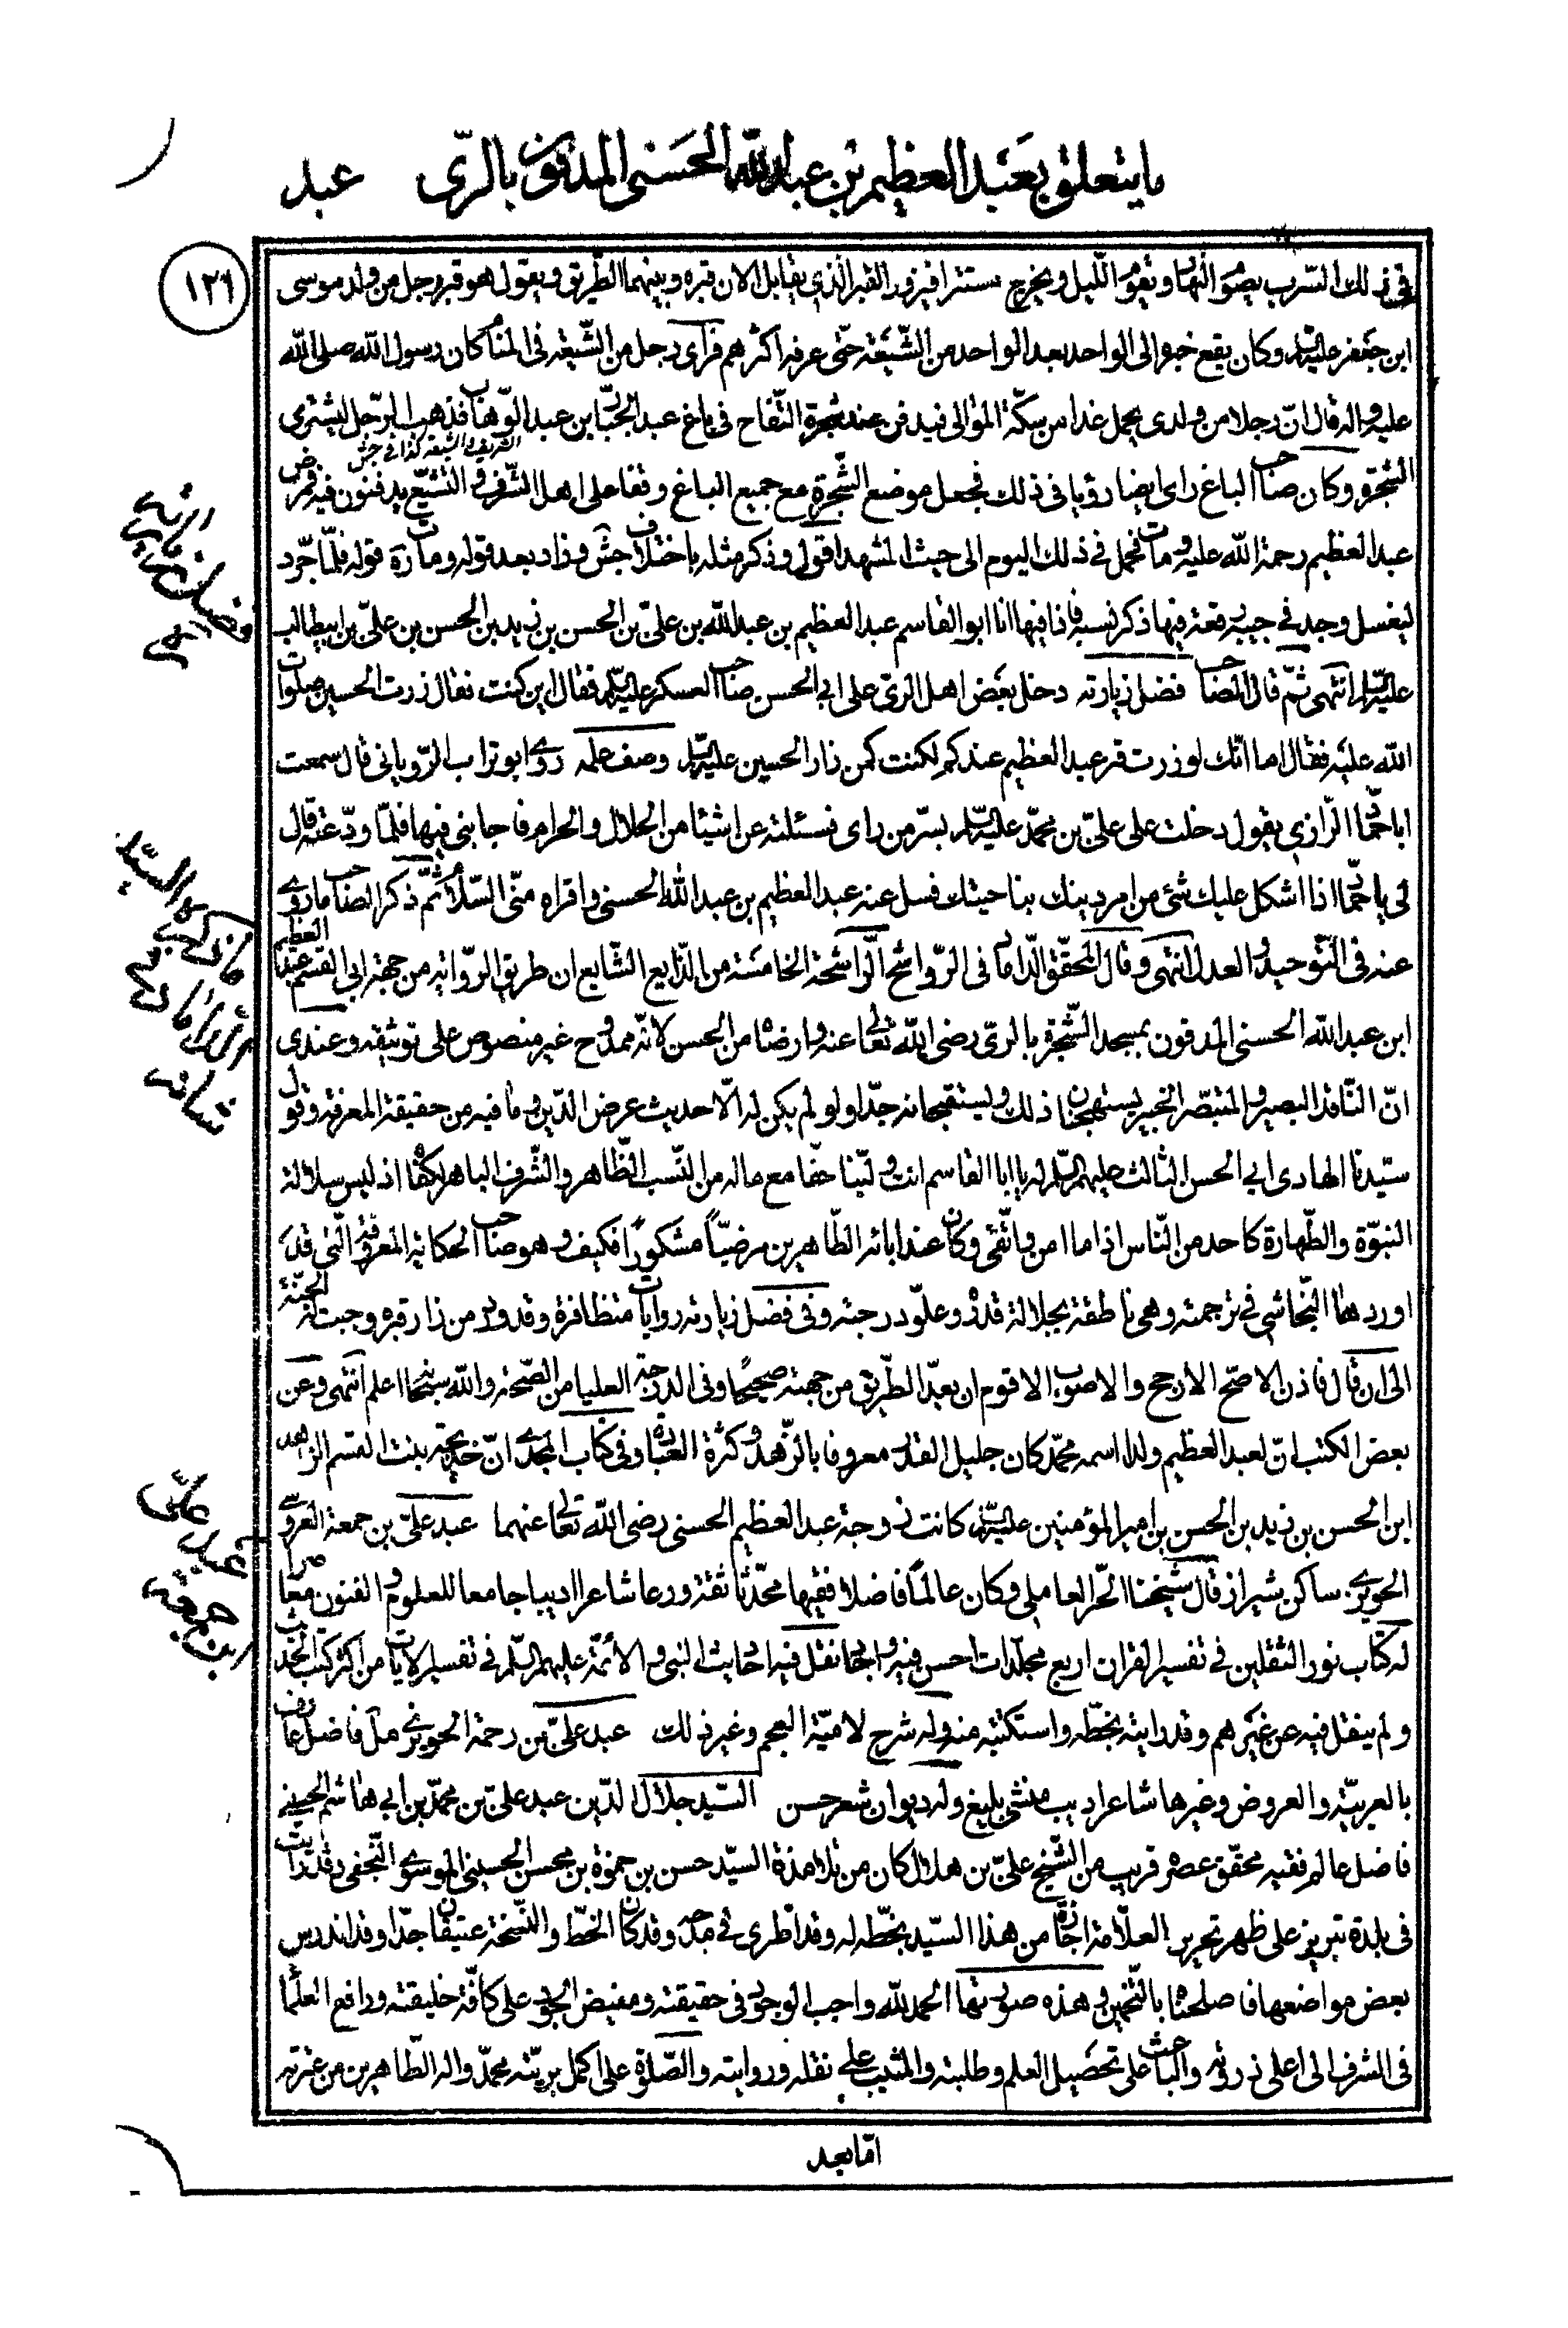 ما يتعلق بعبد العظيم بن عبد الله الحسنى المدفون بالرّى عبد
١٢٦
فى ذلك السّرب يصوم النّهار ويقوم اللّيل ويخرج مستترا فيزور القبر الّذي يقابل الان قبره وبينهما الطّريق ويقول هو قبر رجل من ولد موسى
ابن جعفر عليه السلام وكان يقع خبره الى الواحد بعد الواحد من الشّيعة حتّى عرفه اكثرهم فرآى رجل من الشّيعة فى المنام كان رسول الله صلى الله
عليه واله قال انّ رجلا من ولدى يحمل غدا من سكّة الموالى فيدفن عند شجرة التّفاح فى باغ عبد الجبّار بن عبد الوّهاب فذهب الرّجل ليشترى
الشّجرة وكان صاحب الباغ راى ايضا رؤيا فى ذلك فجعل موضع الشّجرة مع جميع الباغ وقفا على اهل الشّرف فى التّشيّع يدفنون فيه فمرض
الشريف والشيعة كذا فى جش
عبد العظيم رحمة الله عليه ومات فحمل في ذلك اليوم الى حيث المشهد اقول وذكر مثله باختلاف جش وزاد بعد قوله ومات ره قوله فلمّا جرّد
ليغسل وجد في جيبه رقعة فيها ذكر نسبه فاذا فيها انا ابو القاسم عبد العظيم بن عبد اللّه بن علىّ بن الحسن بن زيد بن الحسن بن علىّ بن ابيطالب
عليه السلام انتهى ثم قال الصاحب فضل زيارته دخل بعض اهل الرىّ على ابي الحسن صاحب العسكر عليه السلام فقال اين كنت فقال زرت الحسين صلوات
الله عليه فقال اما انّك لو زرت قبر عبد العظيم عندكم لكنت كمن زار الحسين عليه السلام وصف علمه روى ابو تراب الرّويانى قال سمعت
ابا حمّاد الرّازي يقول دخلت على علىّ بن محمّد عليه السلام بسرّ من راى فسئلته عن اشياء من الحلال والحرام فاجابنى فيها فلمّا ودّعته قال
لى يا حمّاد اذا اشكل عليك شئ من امر دينك بناحيتك فسل عنه عبد العظيم بن عبد الله الحسنى واقراه منّى السّلام ثمّ ذكر الصاحب ما روى
عنه فى التّوحيد والعدل انتهى وقال المحقّق الدّاماد فى الرّواشح الرّاشحة الخامسة من الذّايع الشّايع ان طريق الرّواية من جهة ابى القسم عبد العظيم
ابن عبد الله الحسنى المدفون بمسجد الشّجرة بالرىّ رضى الله تعالى عنه وارضاه من الحسن لانّه ممدوح غير منصوص على توثيقه وعندى
انّ النّاقد البصير والمتبصّر الخبير يستهجنان ذلك ويستقبحانه جدّا ولو لم يكن له الّا حديث عرض الدّين وما فيه من حقيقة المعرفة وقول
سيّدنا الهادى ابى الحسن الثالث عليه السّلام له يا ابا القاسم انت وليّنا حقّا مع ما له من النّسب الظّاهر والشّرف الباهر لكفاه اذ ليس سلالة
النبوّة والطّهارة كاحد من النّاس اذا ما امن واتّقى وكان عند ابائه الطّاهرين مرضيّاً مشكوراً فكيف وهو صاحب الحكاية المعروفة الّتى قد
اوردها النّجاشى في ترجمته وهى ناطقة بجلالة قدره وعلوّ درجته وفى فضل زيارته روايات متظافرة وقد ورد من زار قبره وجبت له الجنّة
الى ان قال فاذن الاصحّ الارجح والاصوب الاقوم ان يعدّ الطّريق من جهته صحيحًا وفى الدرجة العليا من الصّحة والله سبحانه اعلم انتهى وعن
بعض الكتب انّ لعبد العظيم ولدا اسمه محمّد كان جليل القدر معروفا بالزّهد وكثرة العبادة وفى كتاب المجدى انّ خديجة بنت القسم الزاهد
ابن الحسن بن زيد بن الحسن بن امير المؤمنين عليه السّلام كانت زوجة عبد العظيم الحسنى رضى الله تعالى عنهما عبد علىّ بن جمعة العروسي
الحويزى ساكن شيراز قال شيخنا الحّر العاملى وكان عالماً فاضلا فقيها محدّثا ثقة ورعا شاعرا اديبا جامعا للعلوم والفنون معاصرا
له كتاب نور الثقلين في تفسير القران اربع مجلّدات احسن فيه واجاد نقل فيه احاديث النبى والائمّة عليهم السّلام في تفسير الايات من اكثر كتب الحديث
ولم ينقل فيه عن غيرهم وقد رايته بخطّه واستكتبته منه وله شرح لاميّة العجم وغير ذلك عبد علىّ بن رحمة الحويزى فاضل عارف
بالعربيّة والعروض وغيرها شاعر اديب منشى بليغ وله ديوان شعر حسن السّيد جلال الدّين عبد علىّ بن محمّد بن ابي هاشم الحسينى
فاضل عالم فقيه محقّق عصره قريب من الشّيخ علىّ بن هلال كان من تلامذة السيّد حسن بن حمزة بن محسن الحسينى الموسوى النّجفى وقد رايت
فى بلدة تبريز على ظهر تحرير العلّامة اجازة من هذا السيّد بخطّه له وقد اطرى في مدحه وقد كان الخطّ والنّسخة عتيقان جدّا وقد اندرس
بعض مواضعها فاصلحناه بالتّخمين وهذه صورتها الحمد للّه واجب الوجود فى حقيقته ومفيض الجود على كافّة خليقته ورافع العلماء
فى الشرف الى اعلى ذروته والباحث على تحصيل العلم وطلبته والمثيب على نقله وروايته والصّلوة على اكمل بريّته محمّد واله الطّاهرين من عترته
امّا بعد
عبد علىّ
ابن جمعة